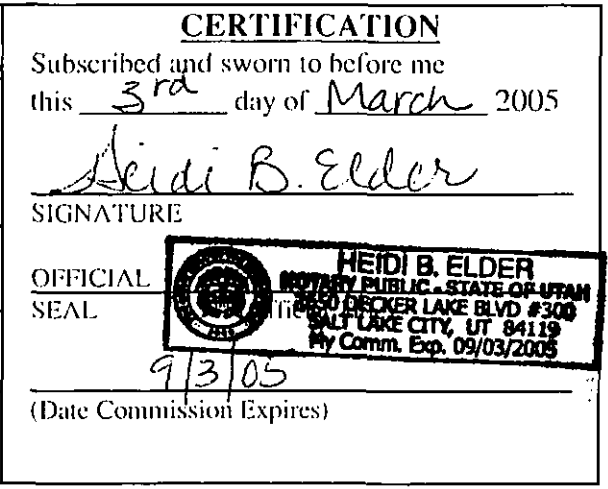 CERTIFICATION
Subscribed and sworn to before me
this 3rd day of March 2005
Heidi B. Elder
SIGNATURE
OFFICIAL
SEAL
HEIDI B. ELDER
NOTARY PUBLIC - STATE OF UTAH
DECKER LAKE BLVD #300
SALT LAKE CITY, UT 84119
My Comm. Exp. 09/03/2005
9/3/05
(Date Commission Expires)